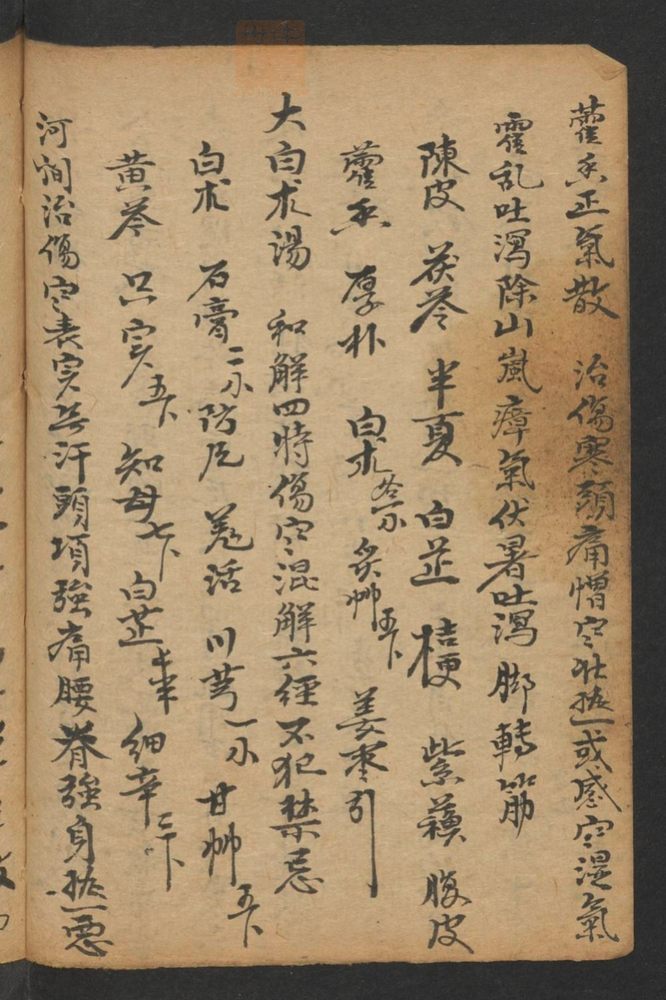 藿香正氣散 治傷寒頭痛憎寒壯热或感寒湿氣
霍乱吐瀉除山嵐瘴氣伏暑吐瀉脚轉筋
陳皮 茯苓 半夏 白芷 桔梗 紫蘓 腹皮
藿香 厚朴 白朮 各 炙艸 五下 姜枣引
大白朮湯 和解四時傷寒混解六經不犯禁忌
白朮 石膏 二 防风 羗活 川芎 一 甘艸 五下
黄芩 只实 五下 知母 七下 白芷 細辛 三下
河间治傷寒表实无汗頭項強痛腰脊強身热悪